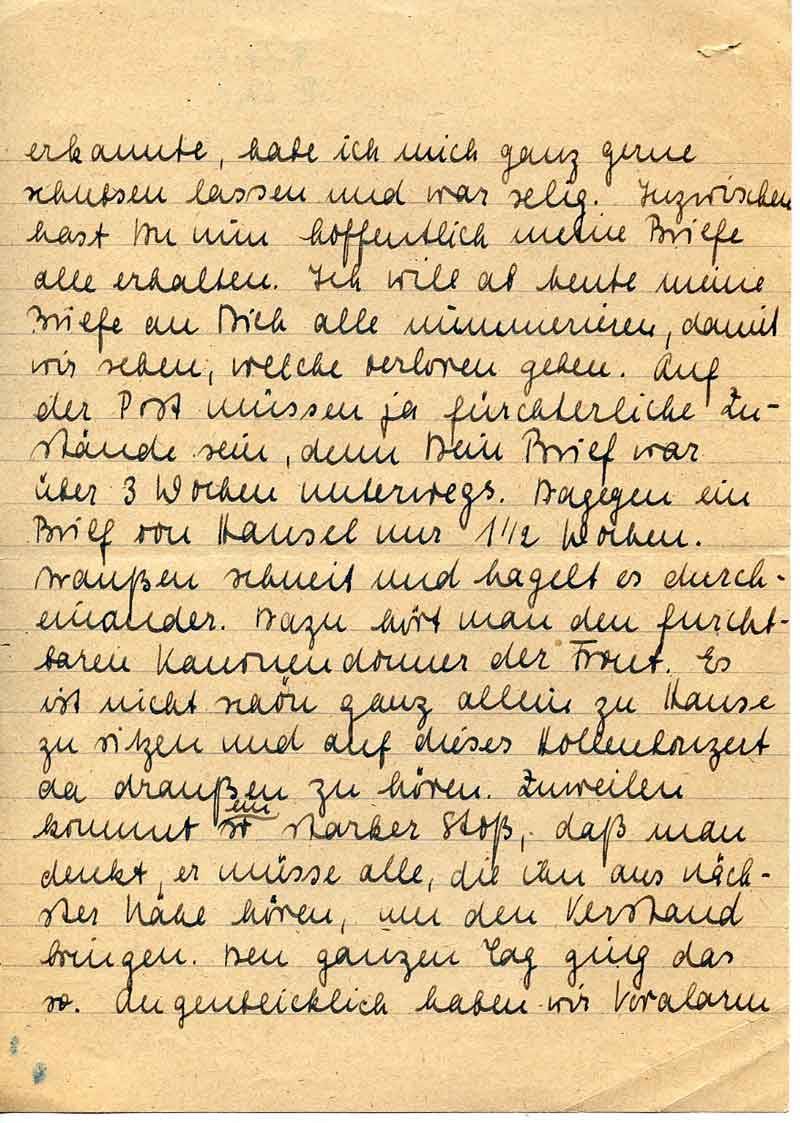 erkannte, habe ich mich ganz gerne
schubsen lassen und war selig. Inzwischen
hast Du nun hoffentlich meine Briefe
alle erhalten. Ich will ab heute meine
Briefe an Dich alle nummerieren, damit
wir sehen, welche verloren gehen. Auf
der Post müssen ja fürchterliche Zu-
stände sein, denn Dein Brief war
über 3 Wochen unterwegs. Dagegen ein
Brief von Hansel nur 1 1/2 Wochen.
Draußen schneit und hagelt es durch-
einander. Dazu hört man den furcht-
baren Kanonendonner der Front. Es
ist nicht schön ganz allein zu Hause
zu sitzen und auf dieses Höllenkonzert
da draußen zu hören. Zuweilen
kommt so ein starker Stoß, daß man
denkt, er müsse alle, die ihn aus näch-
ster Nähe hören, um den Verstand
bringen. Den ganzen Tag ging das
so. Augenblicklich haben wir Voralarm